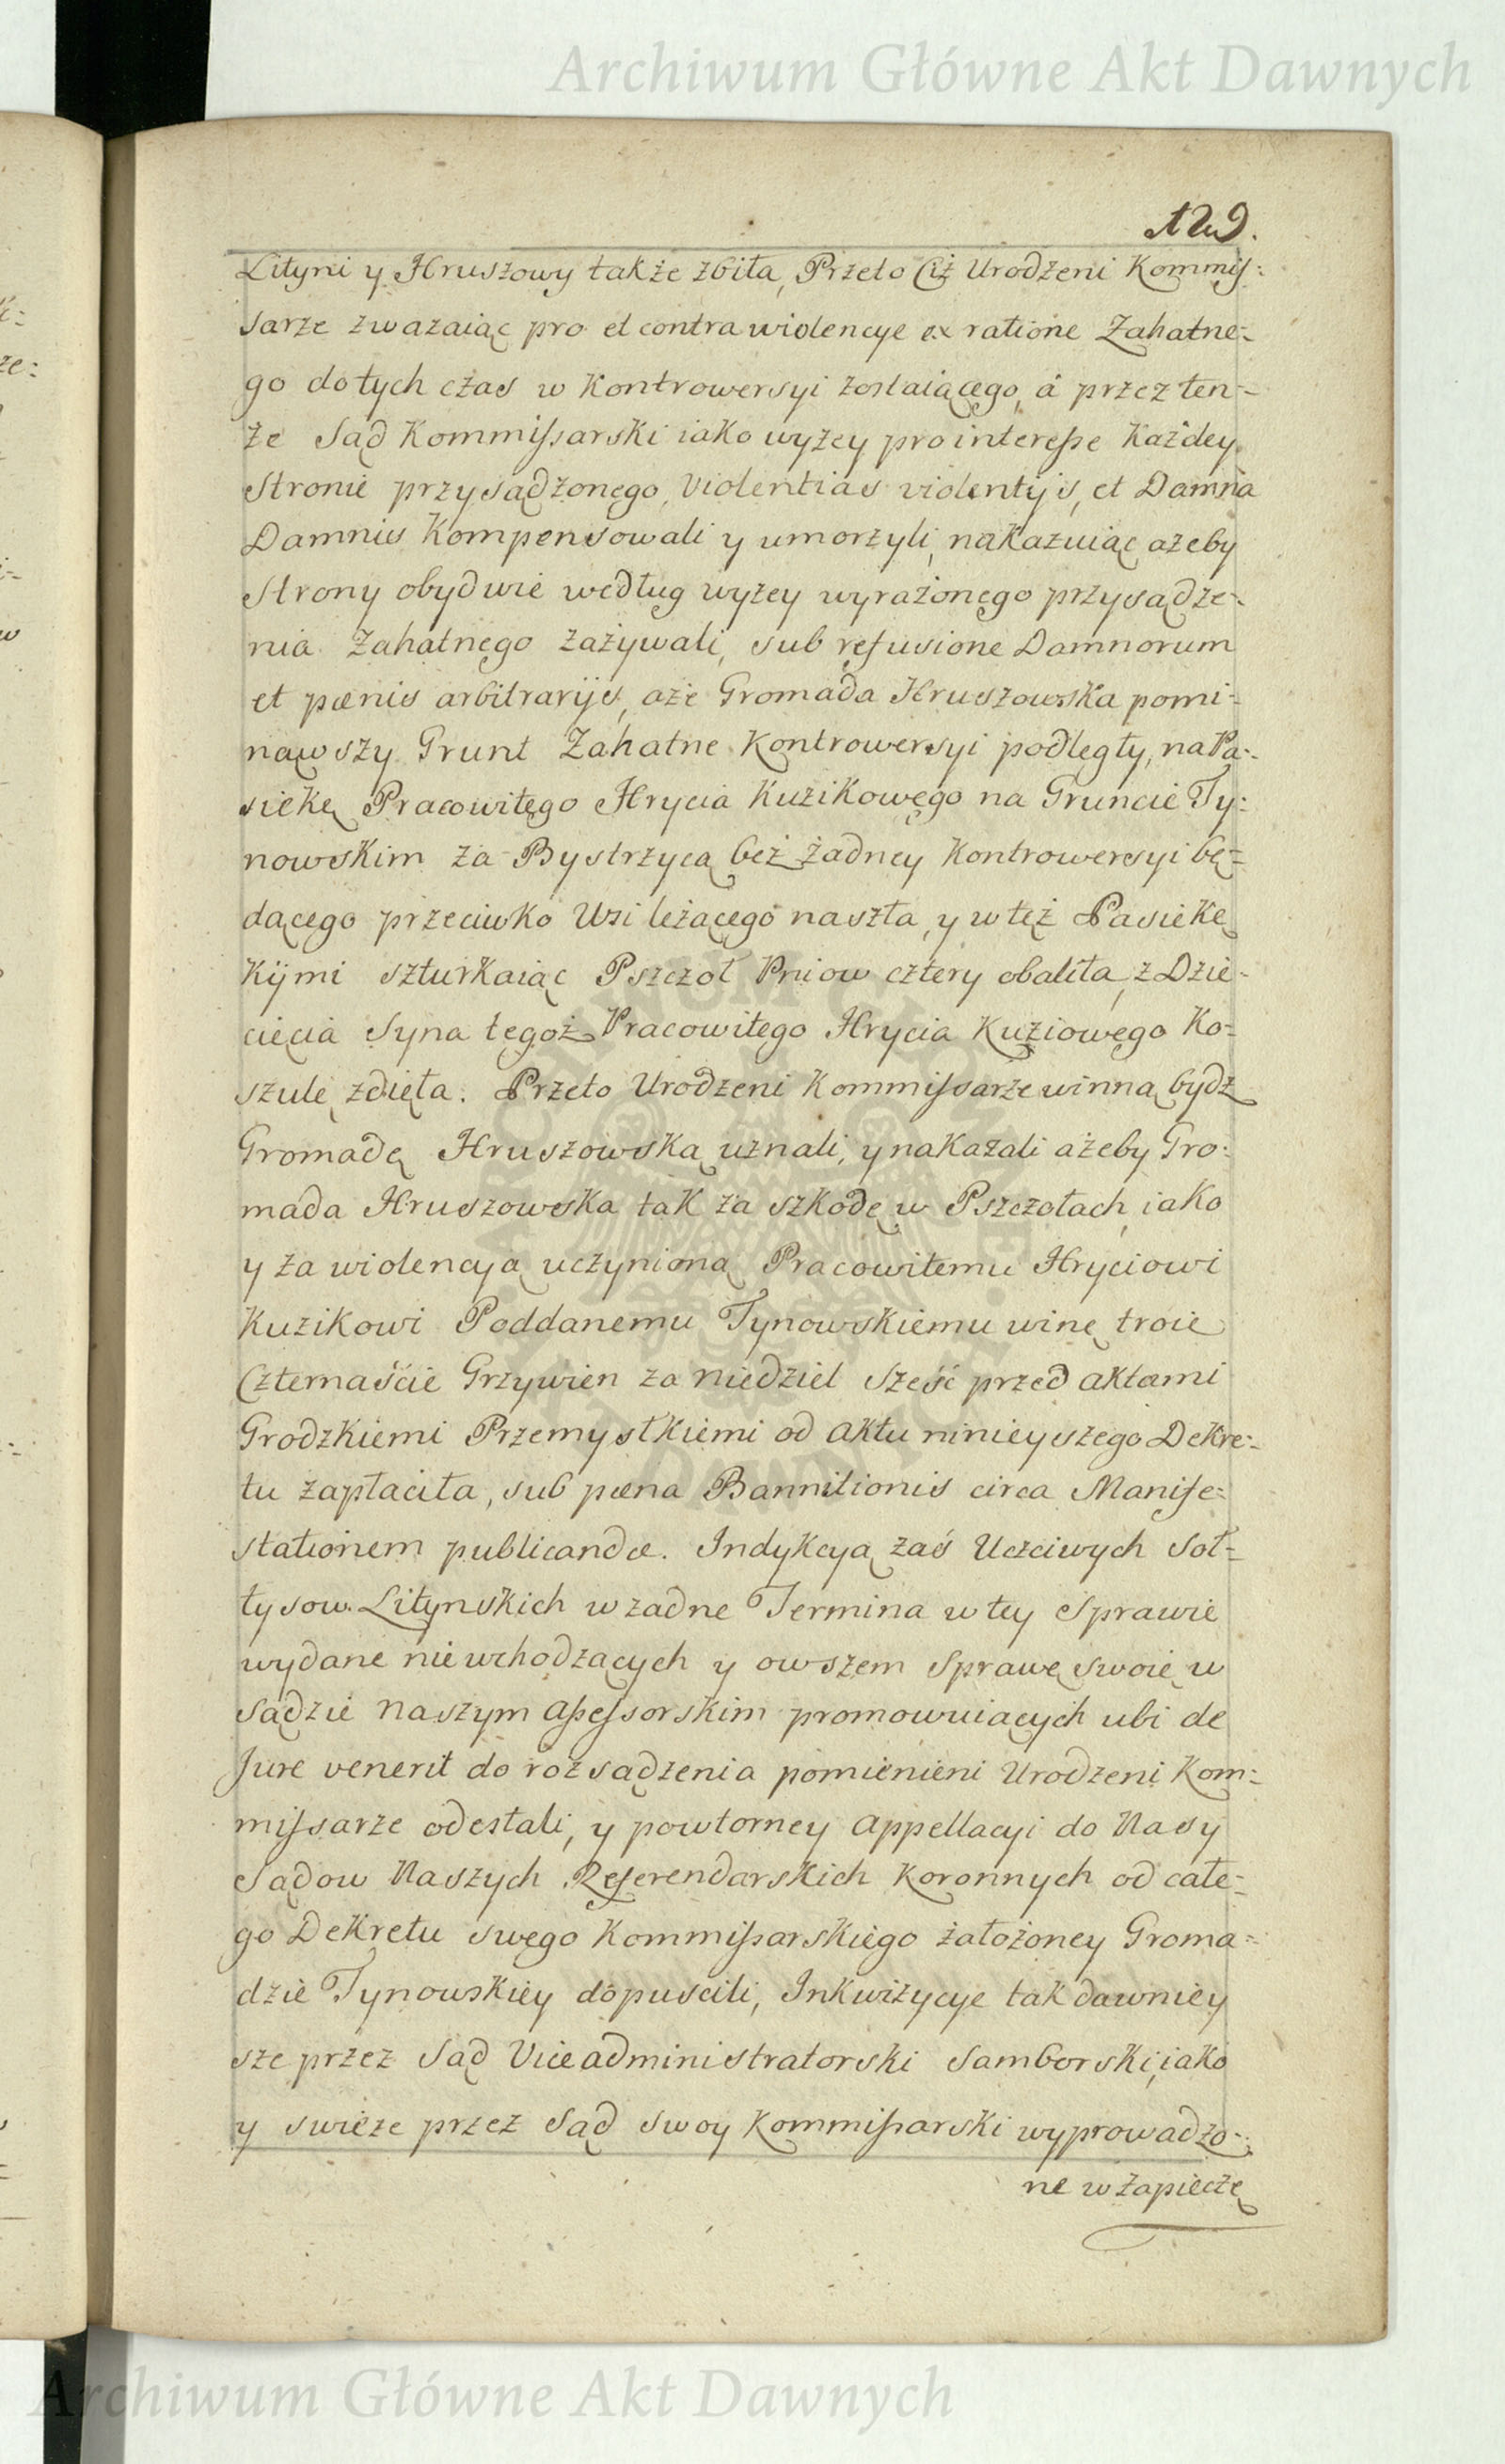 Archiwum Główne Akt Dawnych
129.
Lityni y Hruszowy także zbita, Przeto Ciż Urodzeni Kommis:
sarze zważaiąc pro et contra wiolencye ex ratione Zahatne:
go dotych czas w Kontrowersyi zostaiącego, á przez ten-
że Sąd Kommissarski iako wyżey pro interesse Każdey
Stronie przysądzonego, violentias violentijs, et Damna
Damnis Kompensowali y umorzyli, nakazuiąc ażeby
Strony obydwie według wyżey wyrażonego przysądze-
nia Zahatnego zażywali, sub refusione Damnorum
et pœnis arbitrarijs, aże Gromada Hruszowska pomi-
nąwszy Grunt Zahatne Kontrowersyi podległy, na Pa:
siekę Pracowitego Hrycia Kuzikowego na Gruncie Ty:
nowskim za Bystrzycą bez żadney Kontrowersyi bę=
dącego przeciwko Wsi leżącego naszła, y w też Pasiekę
Kijmi szturkaiąc Pszczoł Pniow cztery obaliła, z Dzie-
cięcia Syna tegoż Pracowitego Hrycia Kuziowego Ko=
szulę zdięła. Przeto Urodzeni Kommissarze winną bydz
Gromadę Hruszowską uznali, y nakazali ażeby Gro:
mada Hruszowska tak za szkodę w Pszczołach, iako
y za wiolencyą uczynioną Pracowitemu Hryciowi
Kuzikowi Poddanemu Tynowskiemu winę troie
Czternaście Grzywien za niedziel sześć przed aktami
Grodzkiemi Przemyslkiemi od aktu ninieyszego Dekre:
tu zapłaciła, sub pœna Bannitionis circa Manife:
stationem publicandæ. Indykcyą zaś Uczciwych Soł=
tysow Lityńskich w zadne Termina w tey Sprawie
wydane niewchodzących y owszem Sprawę swoię w
Sądzie naszym Assessorskim promowuiących ubi de
Jure venerit do rozsądzenia pomienieni Urodzeni Kom:
missarze odesłali, y powtorney Appellacyi do Nas y
Sądow Naszych Referendarskich Koronnych od całe:
go Dekretu swego Kommissarskiego założoney Groma=
dzie Tynowskiey dopuscili, Inkwizycye tak dawniey
sze przez Sąd Viceadministratorski Samborski, iako
y swieże przez Sąd swoy Kommissarski wyprowadzo:
ne w zapieczę
Archiwum Główne Akt Dawnych